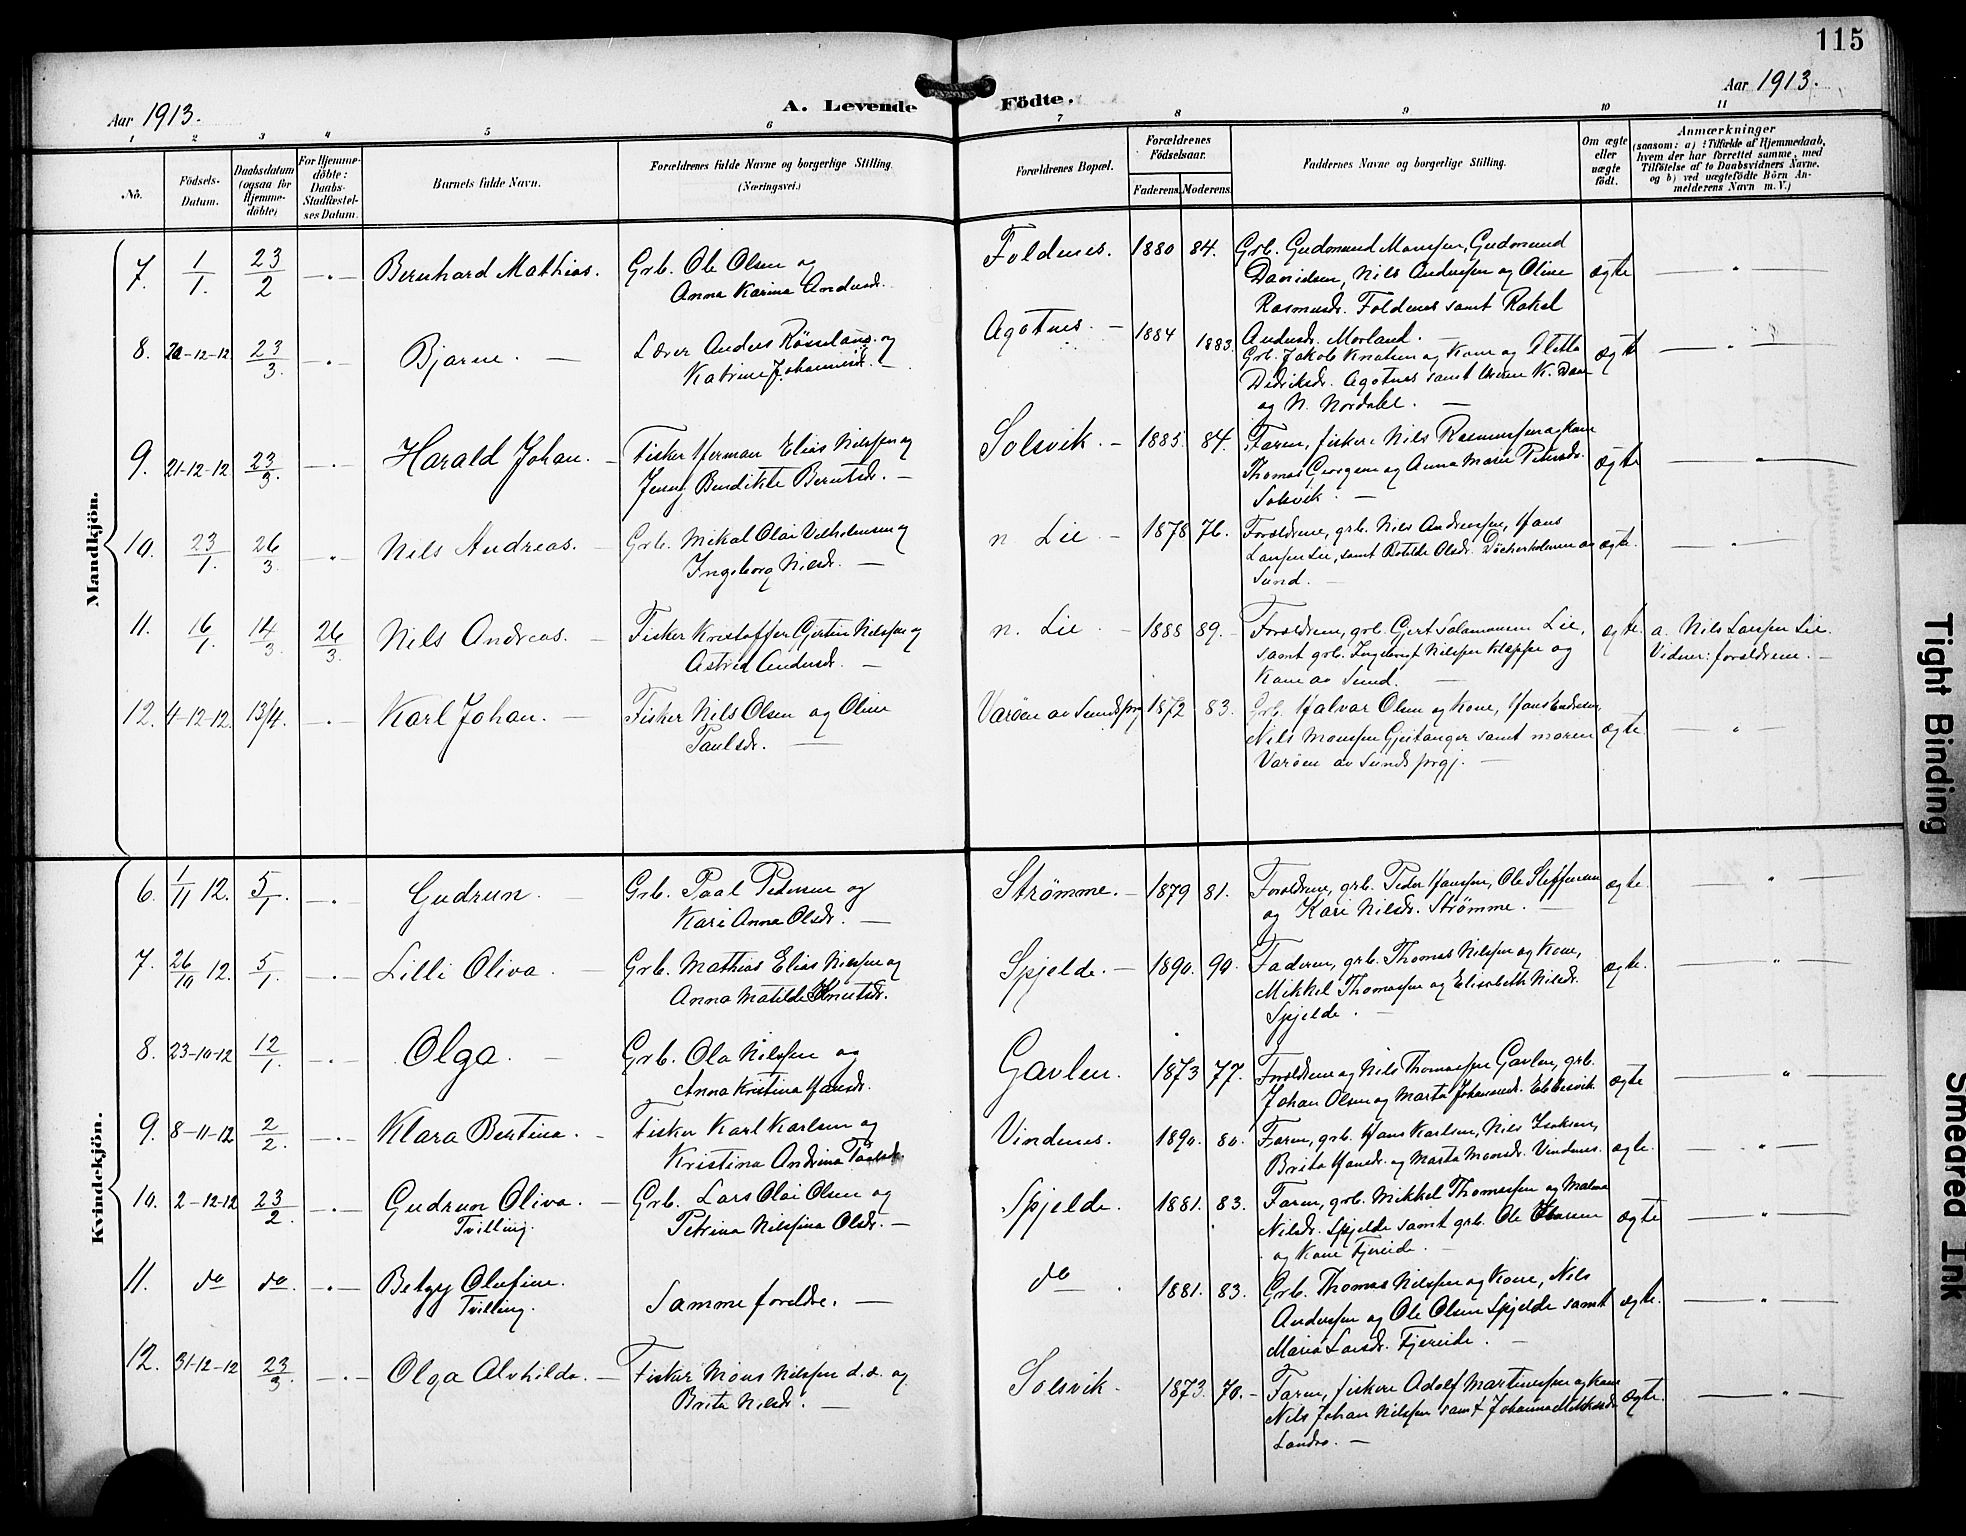 115
Aar 1913.
A. Levende Födte.
Aar 1913.
1 2 3 4 5 6 7 8 9 10 11
No.
Födsels-
Datum.
Daabsdatum
(ogsaa for
Hjemme-
döbte)
For Hjemme-
döbte:
Daabs-
Stadfæstel-
ses Datum.
Barnets fulde Navn.
Forældrenes fulde Navne og borgerlige Stilling.
(Næringsvei.)
Forældrenes Bopæl.
Forældrenes
Födselsaar.
Faderens. Moderens.
Faddernes Navne og borgerlige Stilling.
Om ægte
eller
uægte
födt.
Anmærkninger
(saasom: a) i Tilfælde af Hjemmedaab,
hvem der har forrettet samme, med
Tilföielse af to Daabsvidners Navne,
og b) ved uægtefödte Börn An-
melderens Navn m. V.)
Mandkjön.
7. 1/1. 23/2 Bernhard Mathias. Grb. Ole Olsen og
Anna Karina Andersdr.
Foldenes. 1880 84. Grb. Gudmund Monssen, Gudmund
Davidsen, Nils Andersen og Oline
Rasmusdr. Foldenes samt Rakel
Andersdr. Morland.
ægte
8. 20-12-12 23/3. Bjarne. Lærer Anders Røsseland og
Katrine Johannesdr.
Agotnes. 1884 1883. Grb. Jakob Knutsen og Kone og
Didriksdr. Agotnes samt
og N. Nordahl.
ægte
9. 21-12-12 23/3. Harald Johan. Fisker Herman Elias Nilssen og
Jenny Bendikte Berntsdr.
Solsvik. 1885 84. Faren, fiskere Nils Rasmussen og Kone
Thomas Georgsen og Anna Marie Pedersdr.
Solsvik.
ægte
10. 23/1 26/3. Nils Andreas. Grb. Mikal Olai Vilhelmsen og
Ingeborg Nilsdr.
n. Lie 1878 76. Forældrene, grb. Nils Anderssen, Hans
Larssen Lie, samt Olsdr. av
Sund.
ægte.
11. 16/1 14/3 26/3. Nils Andreas. Fisker Kristoffer Gjertin Nilssen og
Astrid Andersdr.
n. Lie 1888 89. Forældrene, grb. Gjert Salamonsen Lie,
samt grb. Nilssen Kleppe og
Kone av Sund.
ægte. a. Nils Larssen Lie.
Vidner: forældrene.
12. 4-12-12. 13/4. Karl Johan. Fisker Nils Olsen og Oline
Paulsdr.
Varöen av Sunds prgj. 1872 83. Grb. Halvar Olsen og Kone, Hans Endresen,
Nils Monssen Gjeitanger samt moren
Varöen av Sunds prgj.
ægte.
Kvindekjön.
6. 1/11 12. 5/1. Gudrun. Grb. Paal Pedersen og
Kari Anna Olsdr.
Strømme. 1879 81. Forældrene, grb. Peder Hanssen, Ole Steffensen
og Kari Nilsdr. Strømme.
ægte.
7. 26/10 12. 5/1. Lilli Oliva. Grb. Mathias Elias Nilssen og
Anna Matilde Knutsdr.
Spjelde. 1890. 90. Faderen, grb. Thomas Nilssen og Kone,
Mikkel Thomassen og Elisabeth Nilsdr.
Spjelde.
ægte.
8. 23-10-12 12/1. Olga. Grb. Ola Nilssen og
Anna Kristina Hansdr.
Gavlen. 1873 77. Forældrene og Nils Thomassen Gavlen, grb.
Johan Olsen og Marta Johannesdr. Ebbesvik
ægte
9. 8-11-12 2/2. Klara Bertina. Fisker Karl Karlsen og
Kristina Andrina Paulsdr.
Vindenes. 1890. 80. Faren, grb. Hans Karlsen, Nils Isaksen,
Brita Hansdr. og Marta Monsdr. Vindenes.
ægte.
10. 2-12-12 23/2. Gudrun Oliva. Grb. Lars Olai Olsen og
Tvilling. Petrina Nilssina Olsdr.
Spjelde. 1881. 83. Faren, grb. Mikkel Thomassen og Malene
Nilsdr. Spjelde samt grb. Ole
og Kone Fjereide.
ægte
11. do do. Betzy Olufine.
Tvilling. Samme foreldre.
do 1881. 83. Grb. Thomas Nilssen og Kone, Nils
Anderssen og Ole Olsen Spjelde samt
Maria Larsdr. Fjereide.
ægte.
12. 31-12-12 23/3. Olga Alvhilda. Fisker Mons Nilssen d.æ. og
Brite Nilsdr.
Solsvik. 1873. 70. Faren, fiskere Adolf Martinussen og Kone
Nils Johan Nilssen samt Johanna Mikkelsdr.
Landro.
ægte.
Tight Binding
Smeared Ink